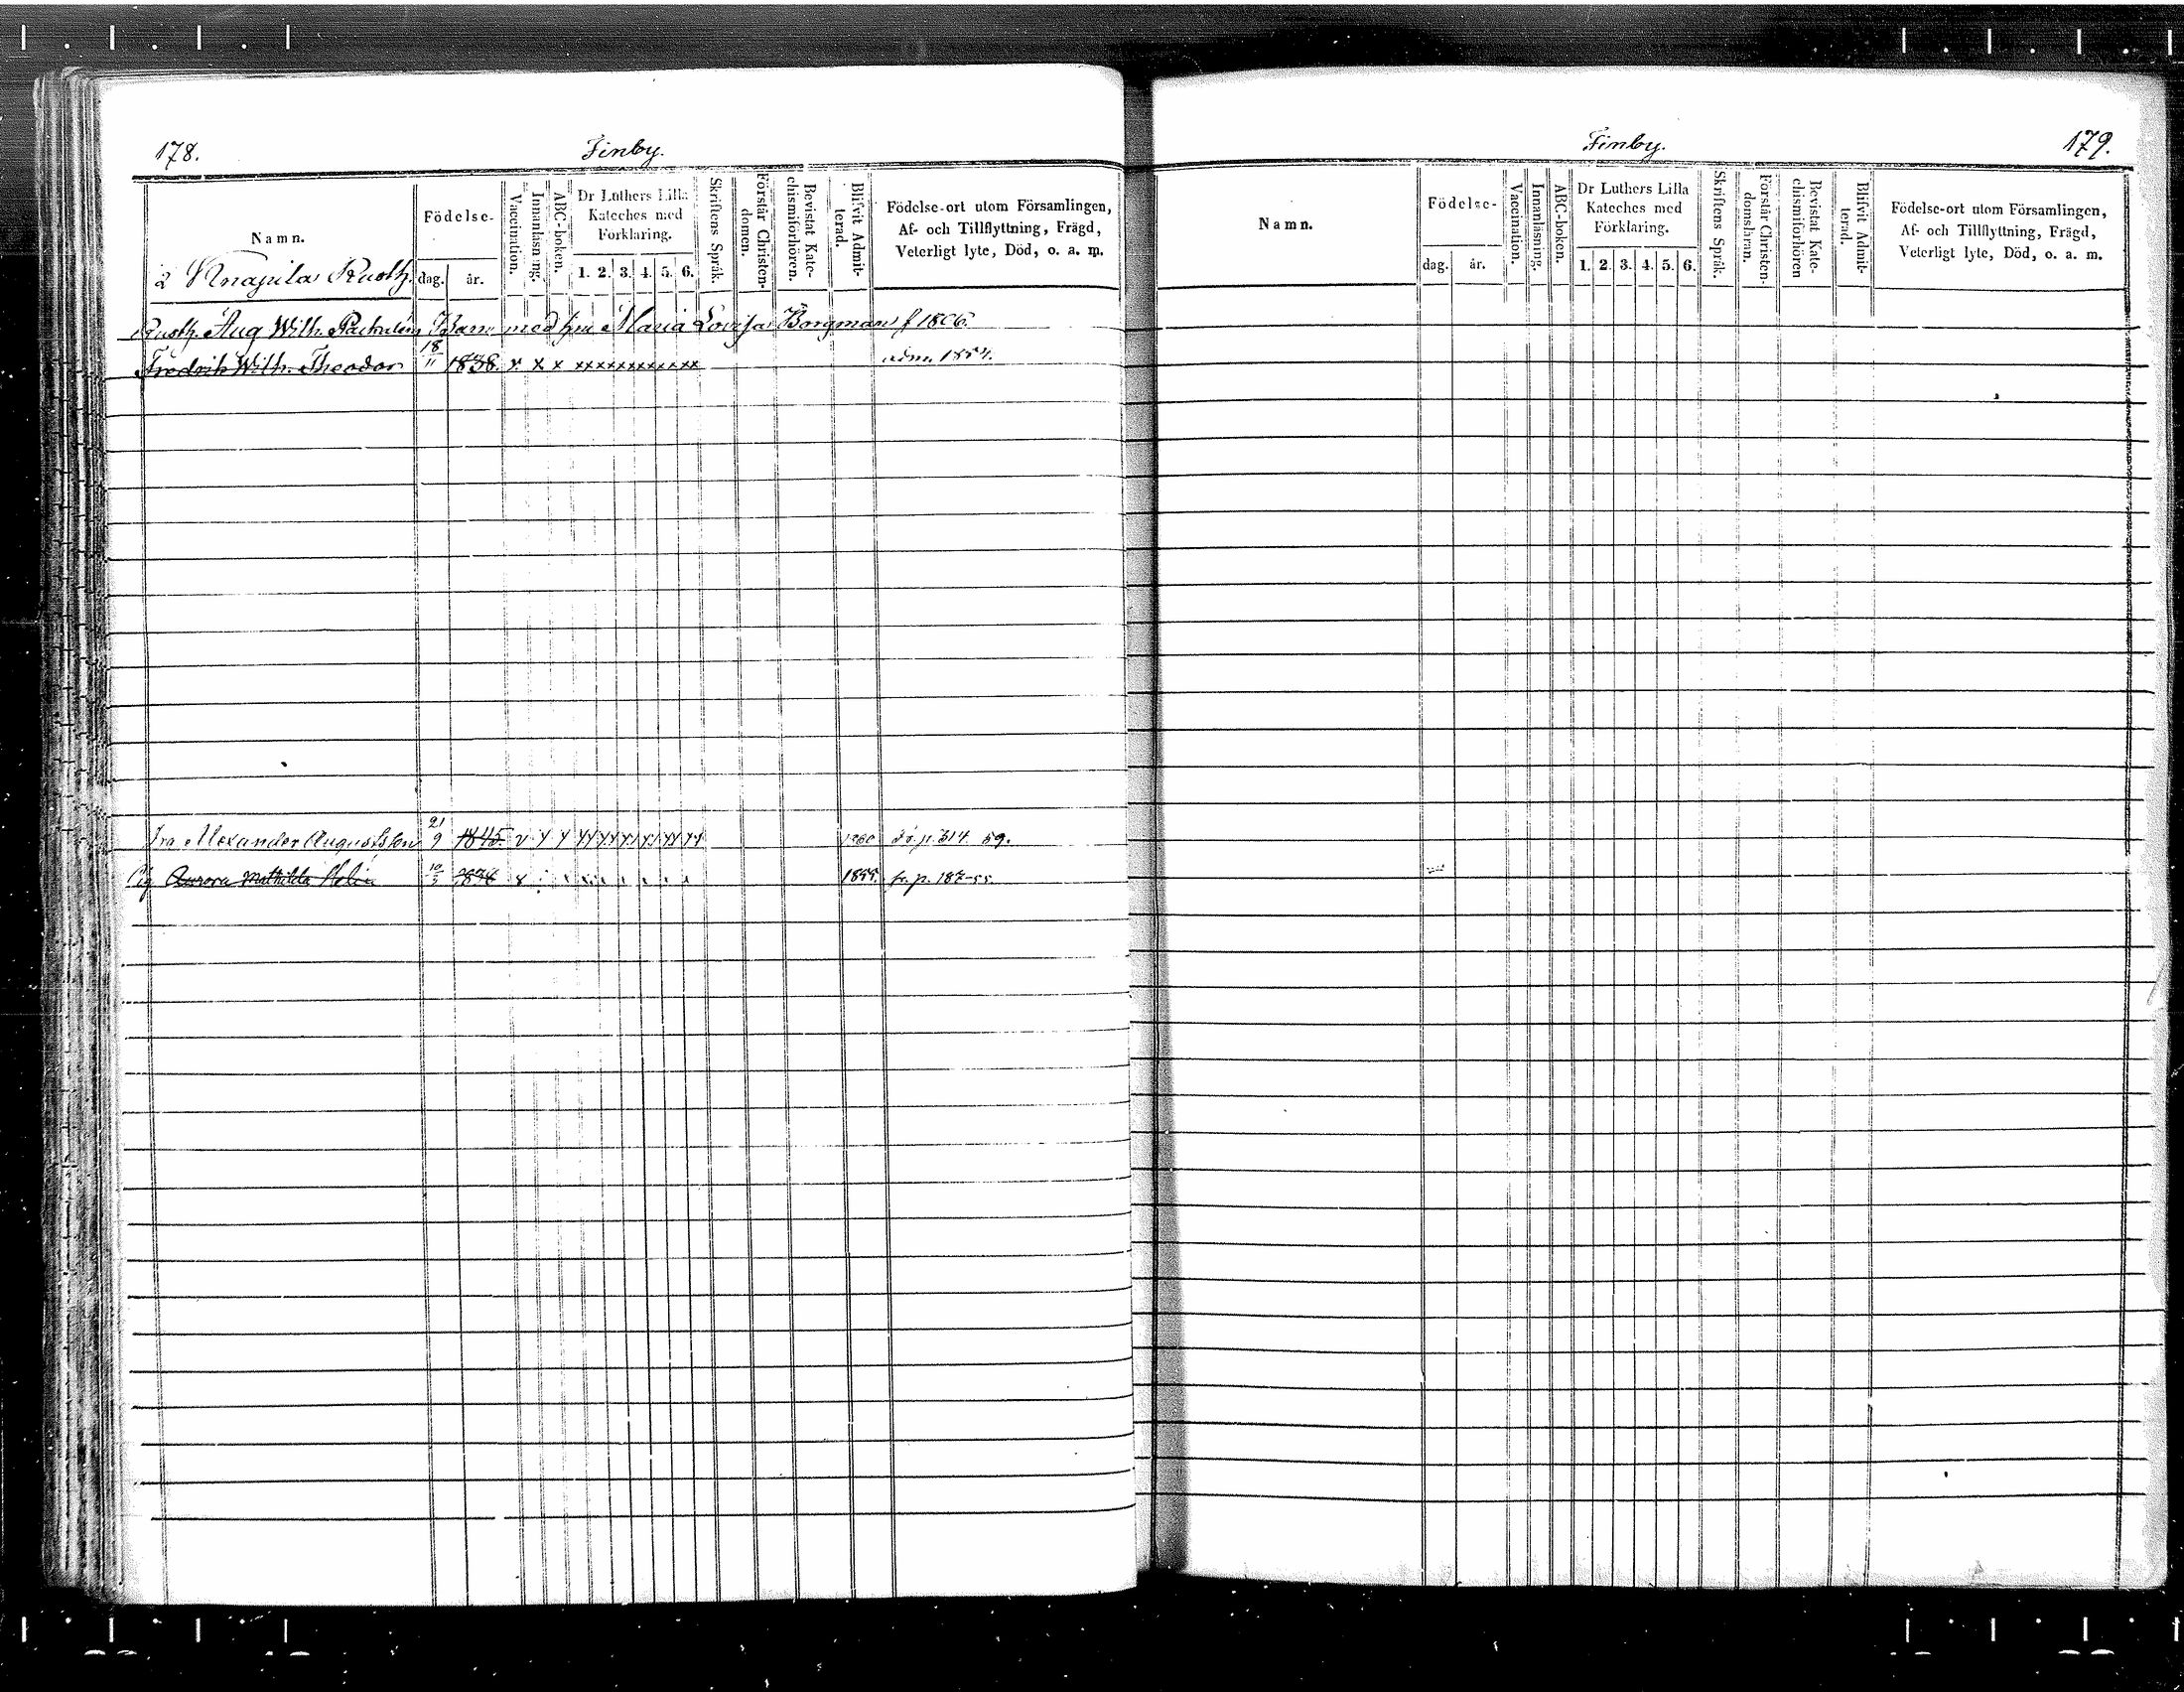 178. Finby.
Namn.
Födelse-
dag. år.
Vaccination.
Innanläsning.
ABC-boken.
Dr Luthers Lilla Kateches med Förklaring.
1. 2. 3. 4. 5. 6.
Skriftens Språk.
Förstår Christen-domen.
Bevistat Kate-chismiförhören.
Blifvit Admit-terad.
Födelse-ort utom Församlingen,
Af- och Tillflyttning, Frägd,
Veterligt lyte, Död, o. a. m.
2 Knapila Rusth.
Rusth. Aug. Wilh. Barn med Maria Lovisa Borgman f 1806.
Fredrik Wilh. Theodor 18/11 1838. x x x xxxxxxxxxxxx adm. 1854.
Alexander Augustsson 21/9 1845. 1860 p. 314. 59.
Pig Aurora Mathilda 10/3 x 1855. fr. p. 187-55.
Finby. 179.
Namn.
Födelse-
dag. år.
Vaccination.
Innanläsning.
ABC-boken.
Dr Luthers Lilla Kateches med Förklaring.
1. 2. 3. 4. 5. 6.
Skriftens Språk.
Förstår Christen-domsläran.
Bevistat Kate-chismiförhören
Blifvit Admit-terad.
Födelse-ort utom Församlingen,
Af- och Tillflyttning, Frägd,
Veterligt lyte, Död, o. a. m.